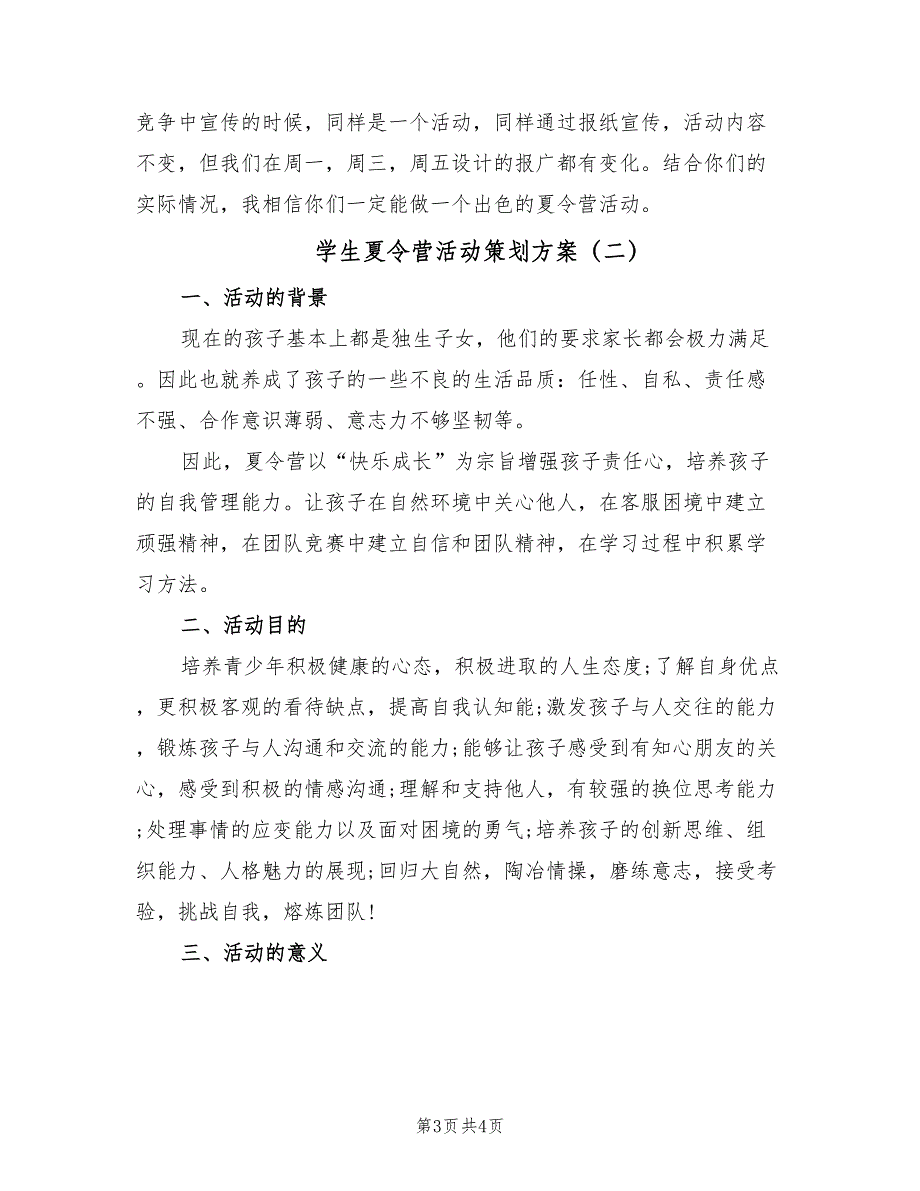 竞争中宣传的时候，同样是一个活动，同样通过报纸宣传，活动内容
不变，但我们在周一，周三，周五设计的报广都有变化。结合你们的
实际情况，我相信你们一定能做一个出色的夏令营活动。
学生夏令营活动策划方案（二）
一、活动的背景
现在的孩子基本上都是独生子女，他们的要求家长都会极力满足
。因此也就养成了孩子的一些不良的生活品质：任性、自私、责任感
不强、合作意识薄弱、意志力不够坚韧等。
因此，夏令营以“快乐成长”为宗旨增强孩子责任心，培养孩子
的自我管理能力。让孩子在自然环境中关心他人，在客服困境中建立
顽强精神，在团队竞赛中建立自信和团队精神，在学习过程中积累学
习方法。
二、活动目的
培养青少年积极健康的心态，积极进取的人生态度;了解自身优点
，更积极客观的看待缺点，提高自我认知能;激发孩子与人交往的能力
，锻炼孩子与人沟通和交流的能力;能够让孩子感受到有知心朋友的关
心，感受到积极的情感沟通;理解和支持他人，有较强的换位思考能力
;处理事情的应变能力以及面对困境的勇气;培养孩子的创新思维、组
织能力、人格魅力的展现;回归大自然，陶冶情操，磨练意志，接受考
验，挑战自我，熔炼团队!
三、活动的意义
第3页共4页